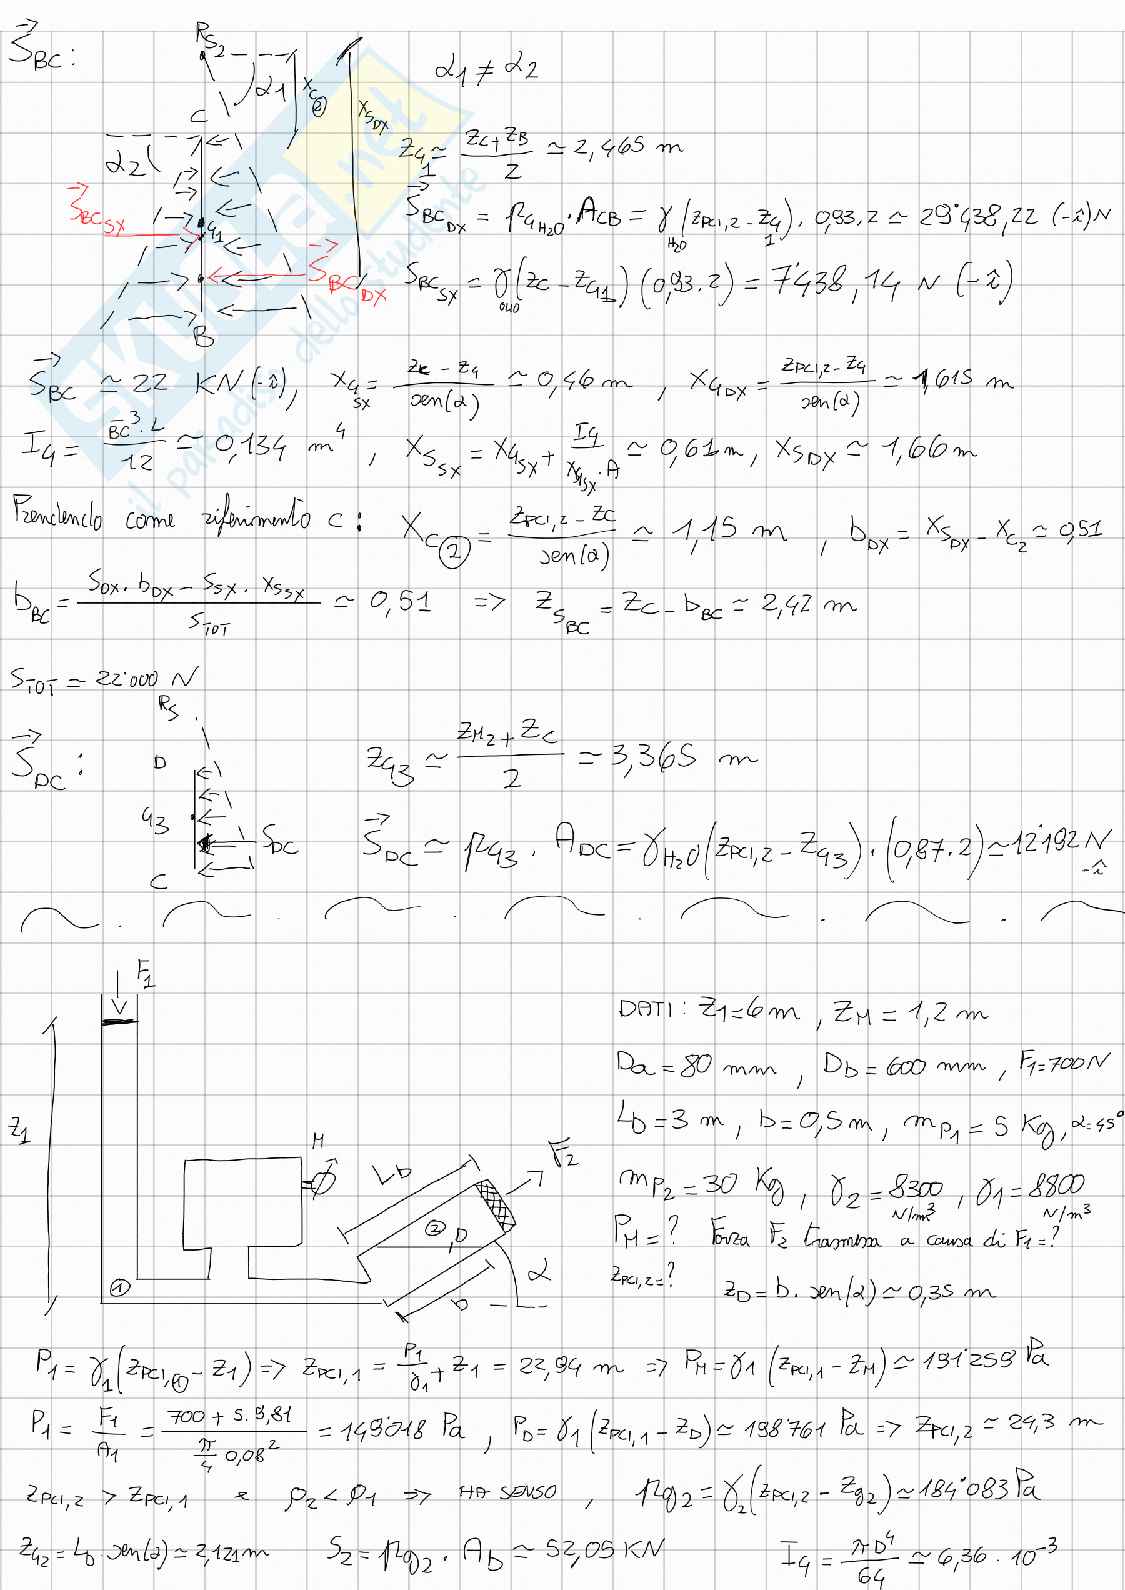 S⃗_BC :
R_S2
α1
x_C②
x_SDX
α1 ≠ α2
C
α2
z_G1 ≃ (z_C + z_B)/2 ≃ 2,465 m
S⃗_BC_SX
G1
S⃗_BC_DX = p_G H2O · A_CB = γ_H2O (z_PCI,2 - z_G1) · 0,93 · 2 ≃ 29'438,22 (-î) N
S⃗_BC_DX
S_BC_SX = γ_OLIO (z_C - z_G1) (0,93 · 2) = 7'438,14 N (-î)
B
S⃗_BC ≃ 22 KN (-î), x_G_SX = (z_C - z_G)/sen(α) ≃ 0,46 m , x_G_DX = (z_PCI,2 - z_G)/sen(α) ≃ 1,615 m
I_G = (B̅C̅³ · L)/12 ≃ 0,134 m⁴ , x_S_SX = x_G_SX + I_G/(x_G_SX · A) ≃ 0,61 m , x_S_DX ≃ 1,66 m
Prendendo come riferimento C : x_C② = (z_PCI,2 - z_C)/sen(α) ≃ 1,15 m , b_DX = x_S_DX - x_C2 ≃ 0,51
b_BC = (S_DX · b_DX - S_SX · x_S_SX)/S_TOT ≃ 0,51 => z_S_BC = z_C - b_BC ≃ 2,42 m
S_TOT ≃ 22'000 N
R_S
S⃗_DC :
D
z_G3 ≃ (z_M2 + z_C)/2 = 3,365 m
G3
S_DC
S⃗_DC ≃ p_G3 · A_DC = γ_H2O (z_PCI,2 - z_G3) · (0,87 · 2) ≃ 12'192 N -î
C
F1
DATI : z1 = 6 m , z_M = 1,2 m
Da = 80 mm , Db = 600 mm , F1 = 700 N
z1
L_b = 3 m , b = 0,5 m , m_P1 = 5 Kg , α = 45°
M
L_b
F2
m_P2 = 30 Kg , γ2 = 8300 N/m³ , γ1 = 8800 N/m³
② D
P_M = ? Forza F2 trasmessa a causa di F1 = ?
α
① b
z_PCI,2 = ? z_D = b · sen(α) ≃ 0,35 m
P1 = γ1 (z_PCI,① - z1) => z_PCI,1 = P1/γ1 + z1 = 22,94 m => P_M = γ1 (z_PCI,1 - z_M) ≃ 191'259 Pa
P1 = F1/A1 = (700 + 5 · 9,81)/(π/4 0,08²) = 149'018 Pa , P_D = γ1 (z_PCI,1 - z_D) ≃ 198'761 Pa => z_PCI,2 ≃ 24,3 m
z_PCI,2 > z_PCI,1 e ρ2 < ρ1 => HA SENSO , p_g2 = γ2 (z_PCI,2 - z_g2) ≃ 184'083 Pa
z_G2 = L_b sen(α) ≃ 2,121 m S2 = p_g2 · A_b ≃ 52,05 KN I_G = πD⁴/64 ≃ 6,36 · 10⁻³